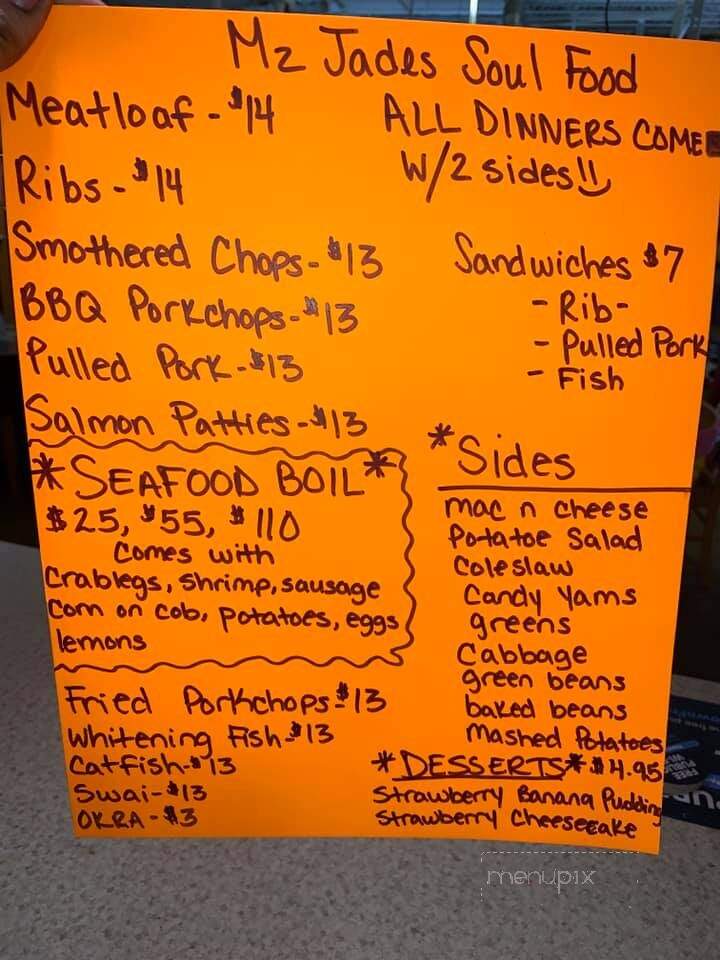 Mz Jades Soul Food
Meatloaf - $14
Ribs - $14
Smothered Chops - $13
BBQ Porkchops - $13
Pulled Pork - $13
Salmon Patties - $13
ALL DINNERS COME
W/2 sides!!
Sandwiches $7
- Rib -
- Pulled Pork
- Fish
*SEAFOOD BOIL*
$25, $55, $110
Comes with
Crablegs, shrimp, sausage
Corn on cob, potatoes, eggs
lemons
Fried Porkchops - $13
Whitening Fish - $13
Catfish - $13
Swai - $13
OKRA - $3
*Sides
mac n cheese
Potatoe Salad
Coleslaw
Candy Yams
greens
Cabbage
green beans
baked beans
Mashed Potatoes
*DESSERTS* $4.95
Strawberry Banana Pudding
Strawberry Cheesecake
menupix